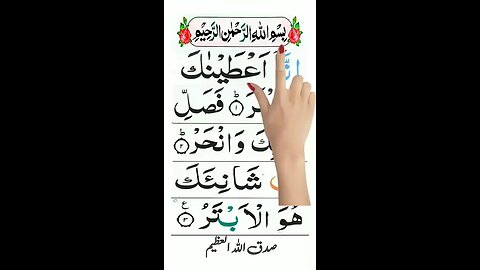 بِسْمِ اللهِ الرَّحْمٰنِ الرَّحِيْمِ
اِنَّاۤ اَعْطَيْنٰكَ
فَصَلِّ
وَانْحَرْؕ ۝۲
شَانِئَكَ
هُوَ الْاَبْتَرُ ۝۳ ع
صدق الله العظيم